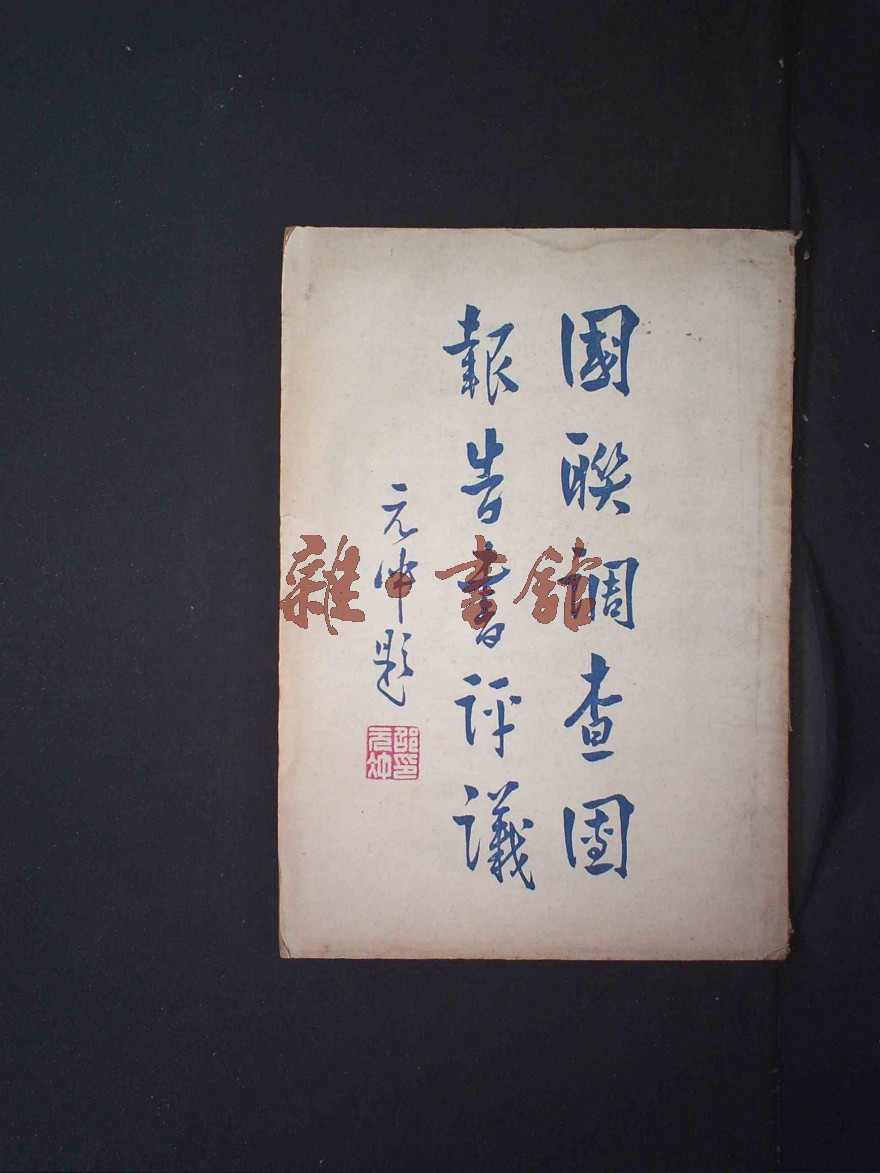 國聯調查團
報告書評議
元冲題
邵元冲印
雜書館